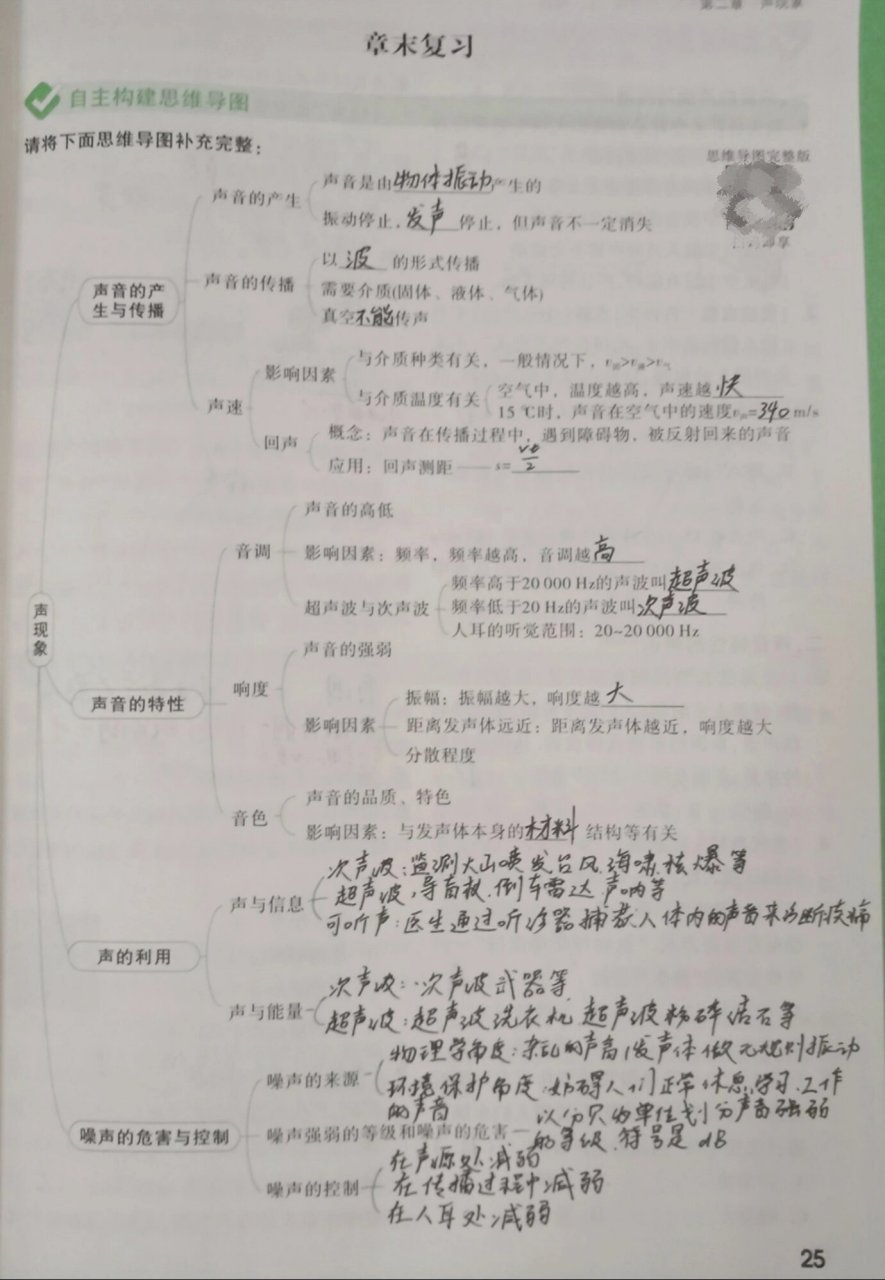 第二章 声现象
章末复习
自主构建思维导图
请将下面思维导图补充完整：
思维导图完整版
声现象
声音的产生与传播
声音的产生
声音是由物体振动产生的
振动停止，发声停止，但声音不一定消失
声音的传播
以波的形式传播
需要介质(固体、液体、气体)
真空不能传声
声速
影响因素
与介质种类有关，一般情况下，v固>v液>v气
与介质温度有关
空气中，温度越高，声速越快
15 ℃时，声音在空气中的速度v声=340 m/s
回声
概念：声音在传播过程中，遇到障碍物，被反射回来的声音
应用：回声测距——s=vt/2
声音的特性
音调
声音的高低
影响因素：频率，频率越高，音调越高
超声波与次声波
频率高于20 000 Hz的声波叫超声波
频率低于20 Hz的声波叫次声波
人耳的听觉范围：20~20 000 Hz
响度
声音的强弱
影响因素
振幅：振幅越大，响度越大
距离发声体远近：距离发声体越近，响度越大
分散程度
音色
声音的品质、特色
影响因素：与发声体本身的材料 结构等有关
声的利用
声与信息
次声波：监测火山喷发台风、海啸、核爆等
超声波，导盲杖、倒车雷达 声呐等
可听声：医生通过听诊器捕获人体内的声音来诊断疾病
声与能量
次声波：次声波武器等
超声波：超声波洗衣机 超声波粉碎结石等
噪声的危害与控制
噪声的来源
物理学角度：杂乱的声音，发声体做无规则振动
环境保护角度：妨碍人们正常休息、学习、工作
的声音
噪声强弱的等级和噪声的危害
以分贝为单位划分声音强弱
的等级 符号是dB
噪声的控制
在声源处减弱
在传播过程中减弱
在人耳处减弱
25